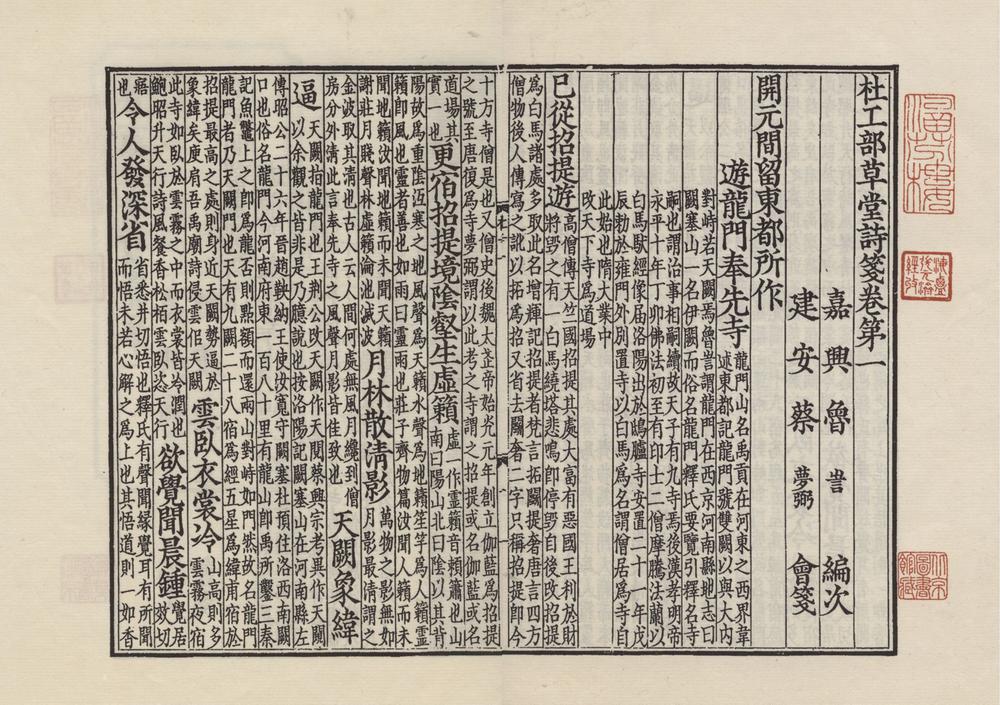 杜工部草堂詩箋卷第一
嘉興魯訔編次
建安蔡夢弼會箋
開元間留東都所作
遊龍門奉先寺
龍門山名禹貢在河東之西界韋
述東都記龍門號雙闕以與大內
對峙若天闕焉魯訔謂龍門在西京河南縣地志曰
闕塞山一名伊闕而俗名龍門釋氏要覽引釋名寺
嗣也謂治事相嗣續故天子有九寺焉後漢孝明帝
永平十年丁卯佛法初至有印士二僧摩騰法蘭以
白馬馱經像届洛陽出於鴻臚寺安置二十一年戊
辰勑於雍門外別置寺以白馬爲名謂僧居爲寺自
此始也隋大業中
改天下寺爲道場
已從招提遊
高僧傳天竺國招提其處大富有惡國王利於財
將毀之有一白馬繞塔悲鳴即停毀自後改招提
爲白馬諸處多取此名增輝記招提者梵言拓鬬提奢唐言四方
僧物後人傳寫之訛以拓爲招又省去鬬奢二字只稱招提即今
十方寺僧是也又僧史後魏太武帝始光元年創立伽藍爲招提
之號至唐復爲寺夢弼謂以此考之寺謂之招提或名伽藍或名
道場其
實一也
更宿招提境陰壑生虛籟
虛一作靈籟音賴簫也山
南曰陽山北曰陰以其背
陽故爲重陰沍寒之地風聲爲天籟水聲爲地籟笙竽爲人籟靈
籟即風也靈者善也如雨曰靈雨也莊子齊物篇汝聞人籟而未
聞地籟汝聞地籟而未聞天籟
謝莊月賤聲林虛籟淪池滅波
月林散清影
萬物之影無如
月影最清謂之
金波取其清也古人云人間何處無風月纔到僧
房分外清此言奉先寺之人風聲月影皆佳致也
天闕象緯
逼
天闕指龍門也王荆公改天闕作天閱蔡興宗考異作天闚
以余觀之皆非是乃臆說也按洛陽記闕塞山在河南縣左
傳昭公二十六年晉趙鞅納王使汝寬守闕塞杜預住洛西南闕
口也俗名龍門今河南府東一百八十里有龍山即禹所鑿三秦
記魚鼈上之即爲龍否則點額而還兩山對峙如門然故名龍門
龍門者乃天闕門也天有九闕二十八宿爲經五星爲緯甫宿於
招提最高之處則身近天闕勢逼於
象緯矣庾肩吾禹廟詩侵雲似天闕
雲臥衣裳冷
山高則多
雲霧夜宿
此寺如臥於雲霧之中而衣裳皆冷潤也
鮑昭升天行詩風餐香松栢雲臥恣天行
欲覺聞晨鍾
覺居
效切
寤
也
令人發深省
省悉井切悟也釋氏有聲聞緣覺耳有所聞
而悟未若心解之爲上也其悟道則一如香